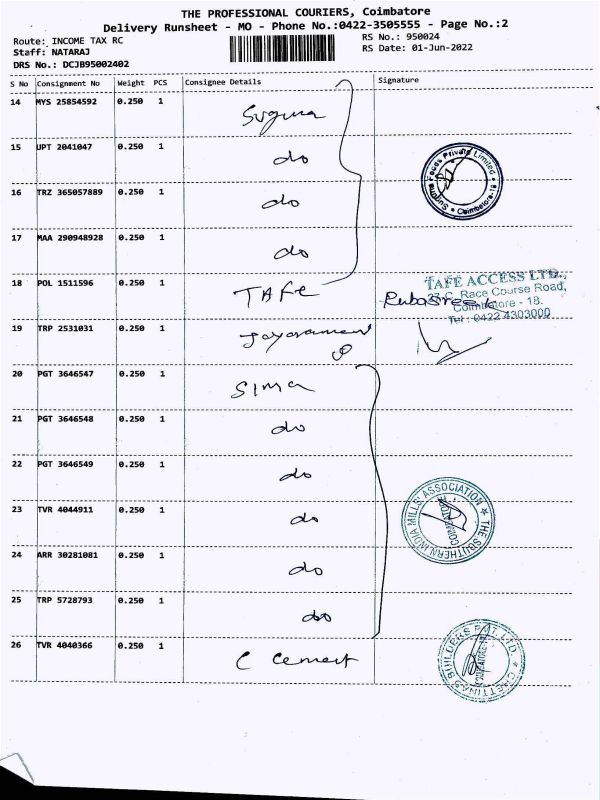 THE PROFESSIONAL COURIERS, Coimbatore
Delivery Runsheet - MO - Phone No.:0422-3505555 - Page No.:2
Route: INCOME TAX RC
RS No.: 950024
Staff: NATARAJ
RS Date: 01-Jun-2022
DRS No.: DCJB95002402
S No Consignment No Weight PCS Consignee Details Signature
14 MYS 25854592 0.250 1 Suguna
15 UPT 2041047 0.250 1 do
Suguna Foods Private Limited * Coimbatore-18 *
16 TRZ 365057889 0.250 1 do
17 MAA 290948928 0.250 1 do
18 POL 1511596 0.250 1 TAFE
TAFE ACCESS LTD.,
27-C, Race Course Road,
Coimbatore - 18.
Tel : 0422 4303000
19 TRP 2531031 0.250 1
20 PGT 3646547 0.250 1 Sima
21 PGT 3646548 0.250 1 do
22 PGT 3646549 0.250 1 do
23 TVR 4044911 0.250 1 do
THE SOUTHERN INDIA MILLS' ASSOCIATION
COIMBATORE
24 ARR 30281081 0.250 1 do
25 TRP 5728793 0.250 1 do
26 TVR 4040366 0.250 1 C Cement
CHETTINAD BUILDERS PVT. LTD.